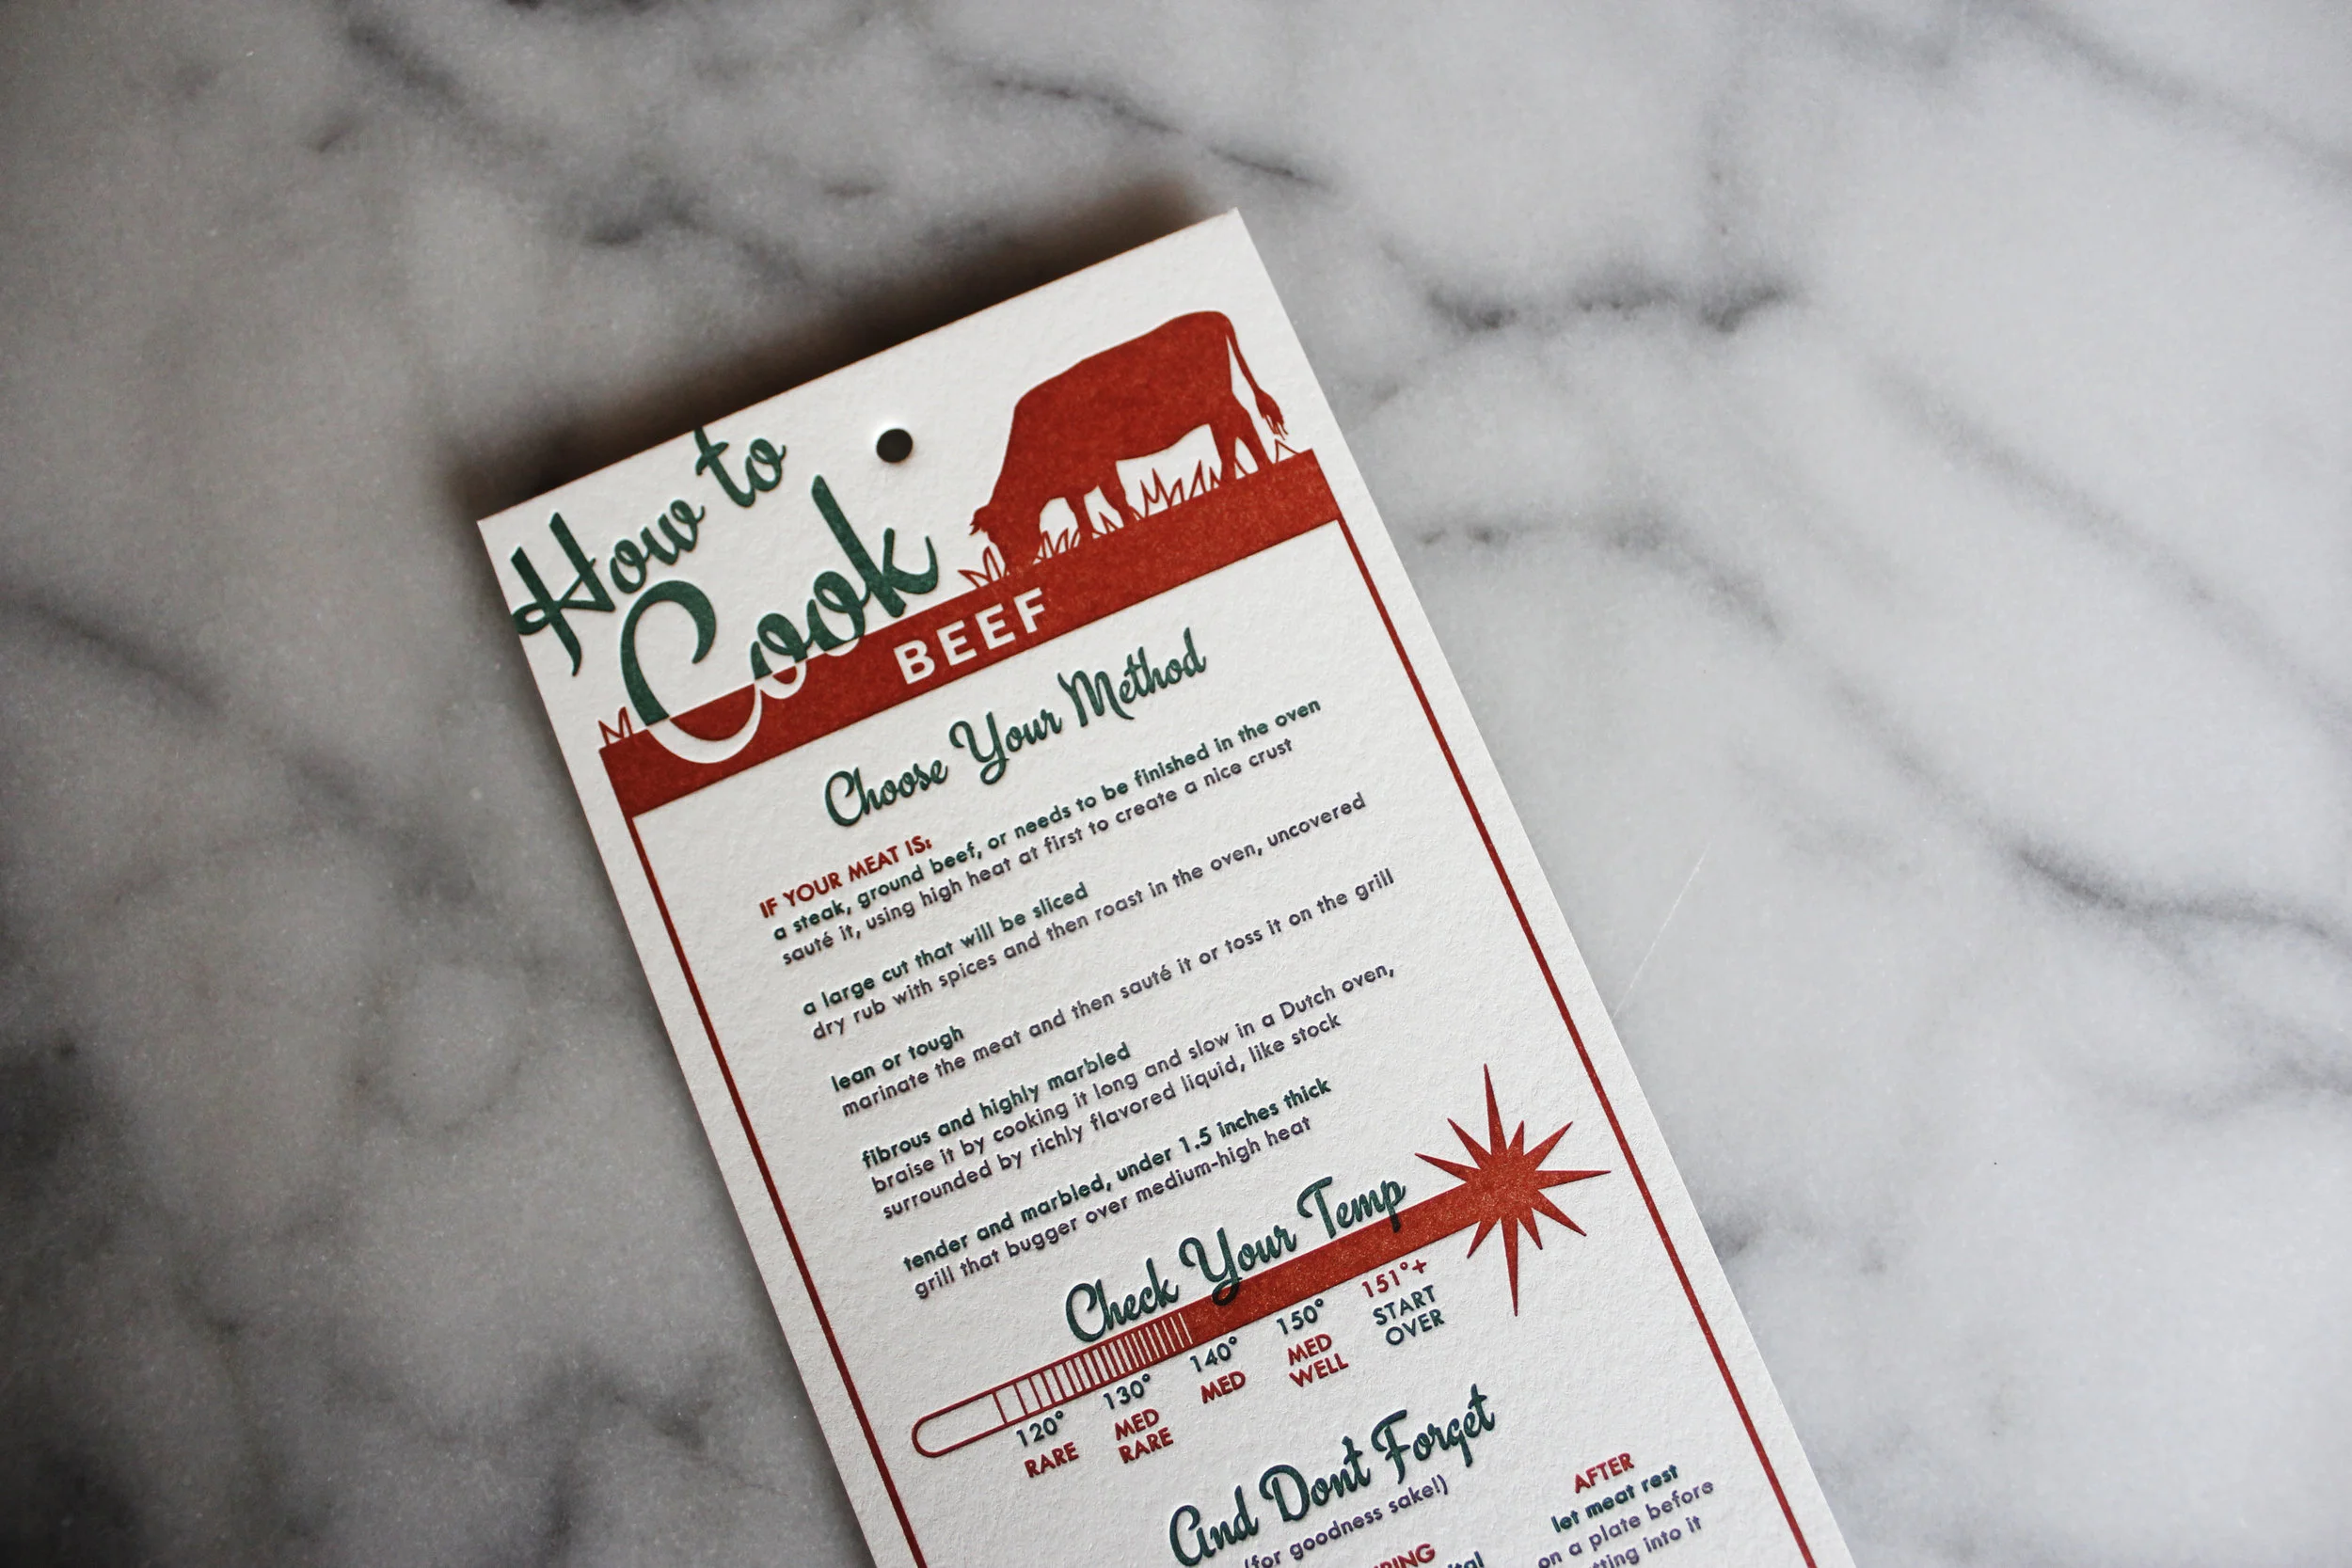 How to
Cook
BEEF
Choose Your Method
IF YOUR MEAT IS:
a steak, ground beef, or needs to be finished in the oven
sauté it, using high heat at first to create a nice crust
a large cut that will be sliced
dry rub with spices and then roast in the oven, uncovered
lean or tough
marinate the meat and then sauté it or toss it on the grill
fibrous and highly marbled
braise it by cooking it long and slow in a Dutch oven,
surrounded by richly flavored liquid, like stock
tender and marbled, under 1.5 inches thick
grill that bugger over medium-high heat
Check Your Temp
120°
RARE
130°
MED
RARE
140°
MED
150°
MED
WELL
151°+
START
OVER
And Don't Forget
(for goodness sake!)
AFTER
let meat rest
on a plate before
into it